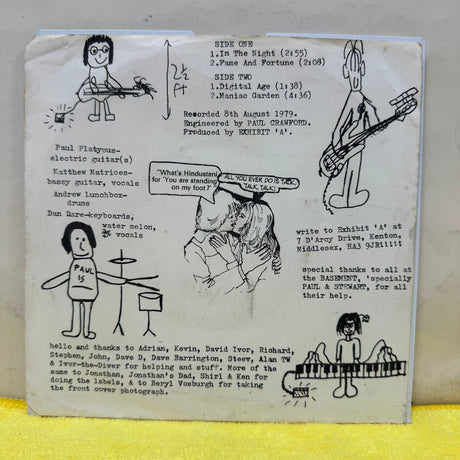 SIDE ONE
1.In The Night (2:55)
2.Fame And Fortune (2:08)
SIDE TWO
1.Digital Age (1:38)
2.Maniac Garden (4:36)
Recorded 8th August 1979.
Engineered by PAUL CRAWFORD.
Produced by EXHIBIT 'A'.
2½
Ft
Paul Platypus-
electric guitar(s)
Matthew Matrices-
bassy guitar, vocals
Andrew Lunchbox-
drums
Dan Dare-keyboards,
water melon,
& vocals
"What's Hindustani
for 'You are standing
on my foot'?"
ALL YOU EVER DO IS TALK,
TALK, TALK!
write to Exhibit 'A' at
7 D'Arcy Drive, Kenton,
Middlesex, HA3 9JR!!!!!
special thanks to all at
the BASEMENT, 'specially
PAUL & STEWART, for all
their help.
PAUL
IS
hello and thanks to Adrian, Kevin, David Ivor, Richard,
Stephen, John, Dave D, Dave Barrington, Steev, Alan TW
& Ivor-the-Diver for helping and stuff. More of the
same to Jonathan, Jonathan's Dad, Shirl & Ken for
doing the labels, & to Beryl Vosburgh for taking
the front cover photograph.